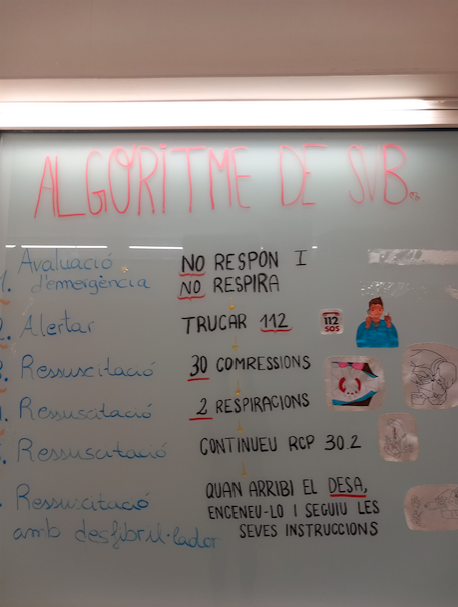 ALGORITME DE SVB
1. Avaluació d'emergència
NO RESPON I
NO RESPIRA
2. Alertar
TRUCAR 112
112
SOS
3. Ressuscitació
30 COMRESSIONS
4. Ressuscitació
2 RESPIRACIONS
5. Ressuscitació
CONTINUEU RCP 30.2
Ressuscitació
amb desfibril·lador
QUAN ARRIBI EL DESA,
ENCENEU-LO I SEGUIU LES
SEVES INSTRUCCIONS